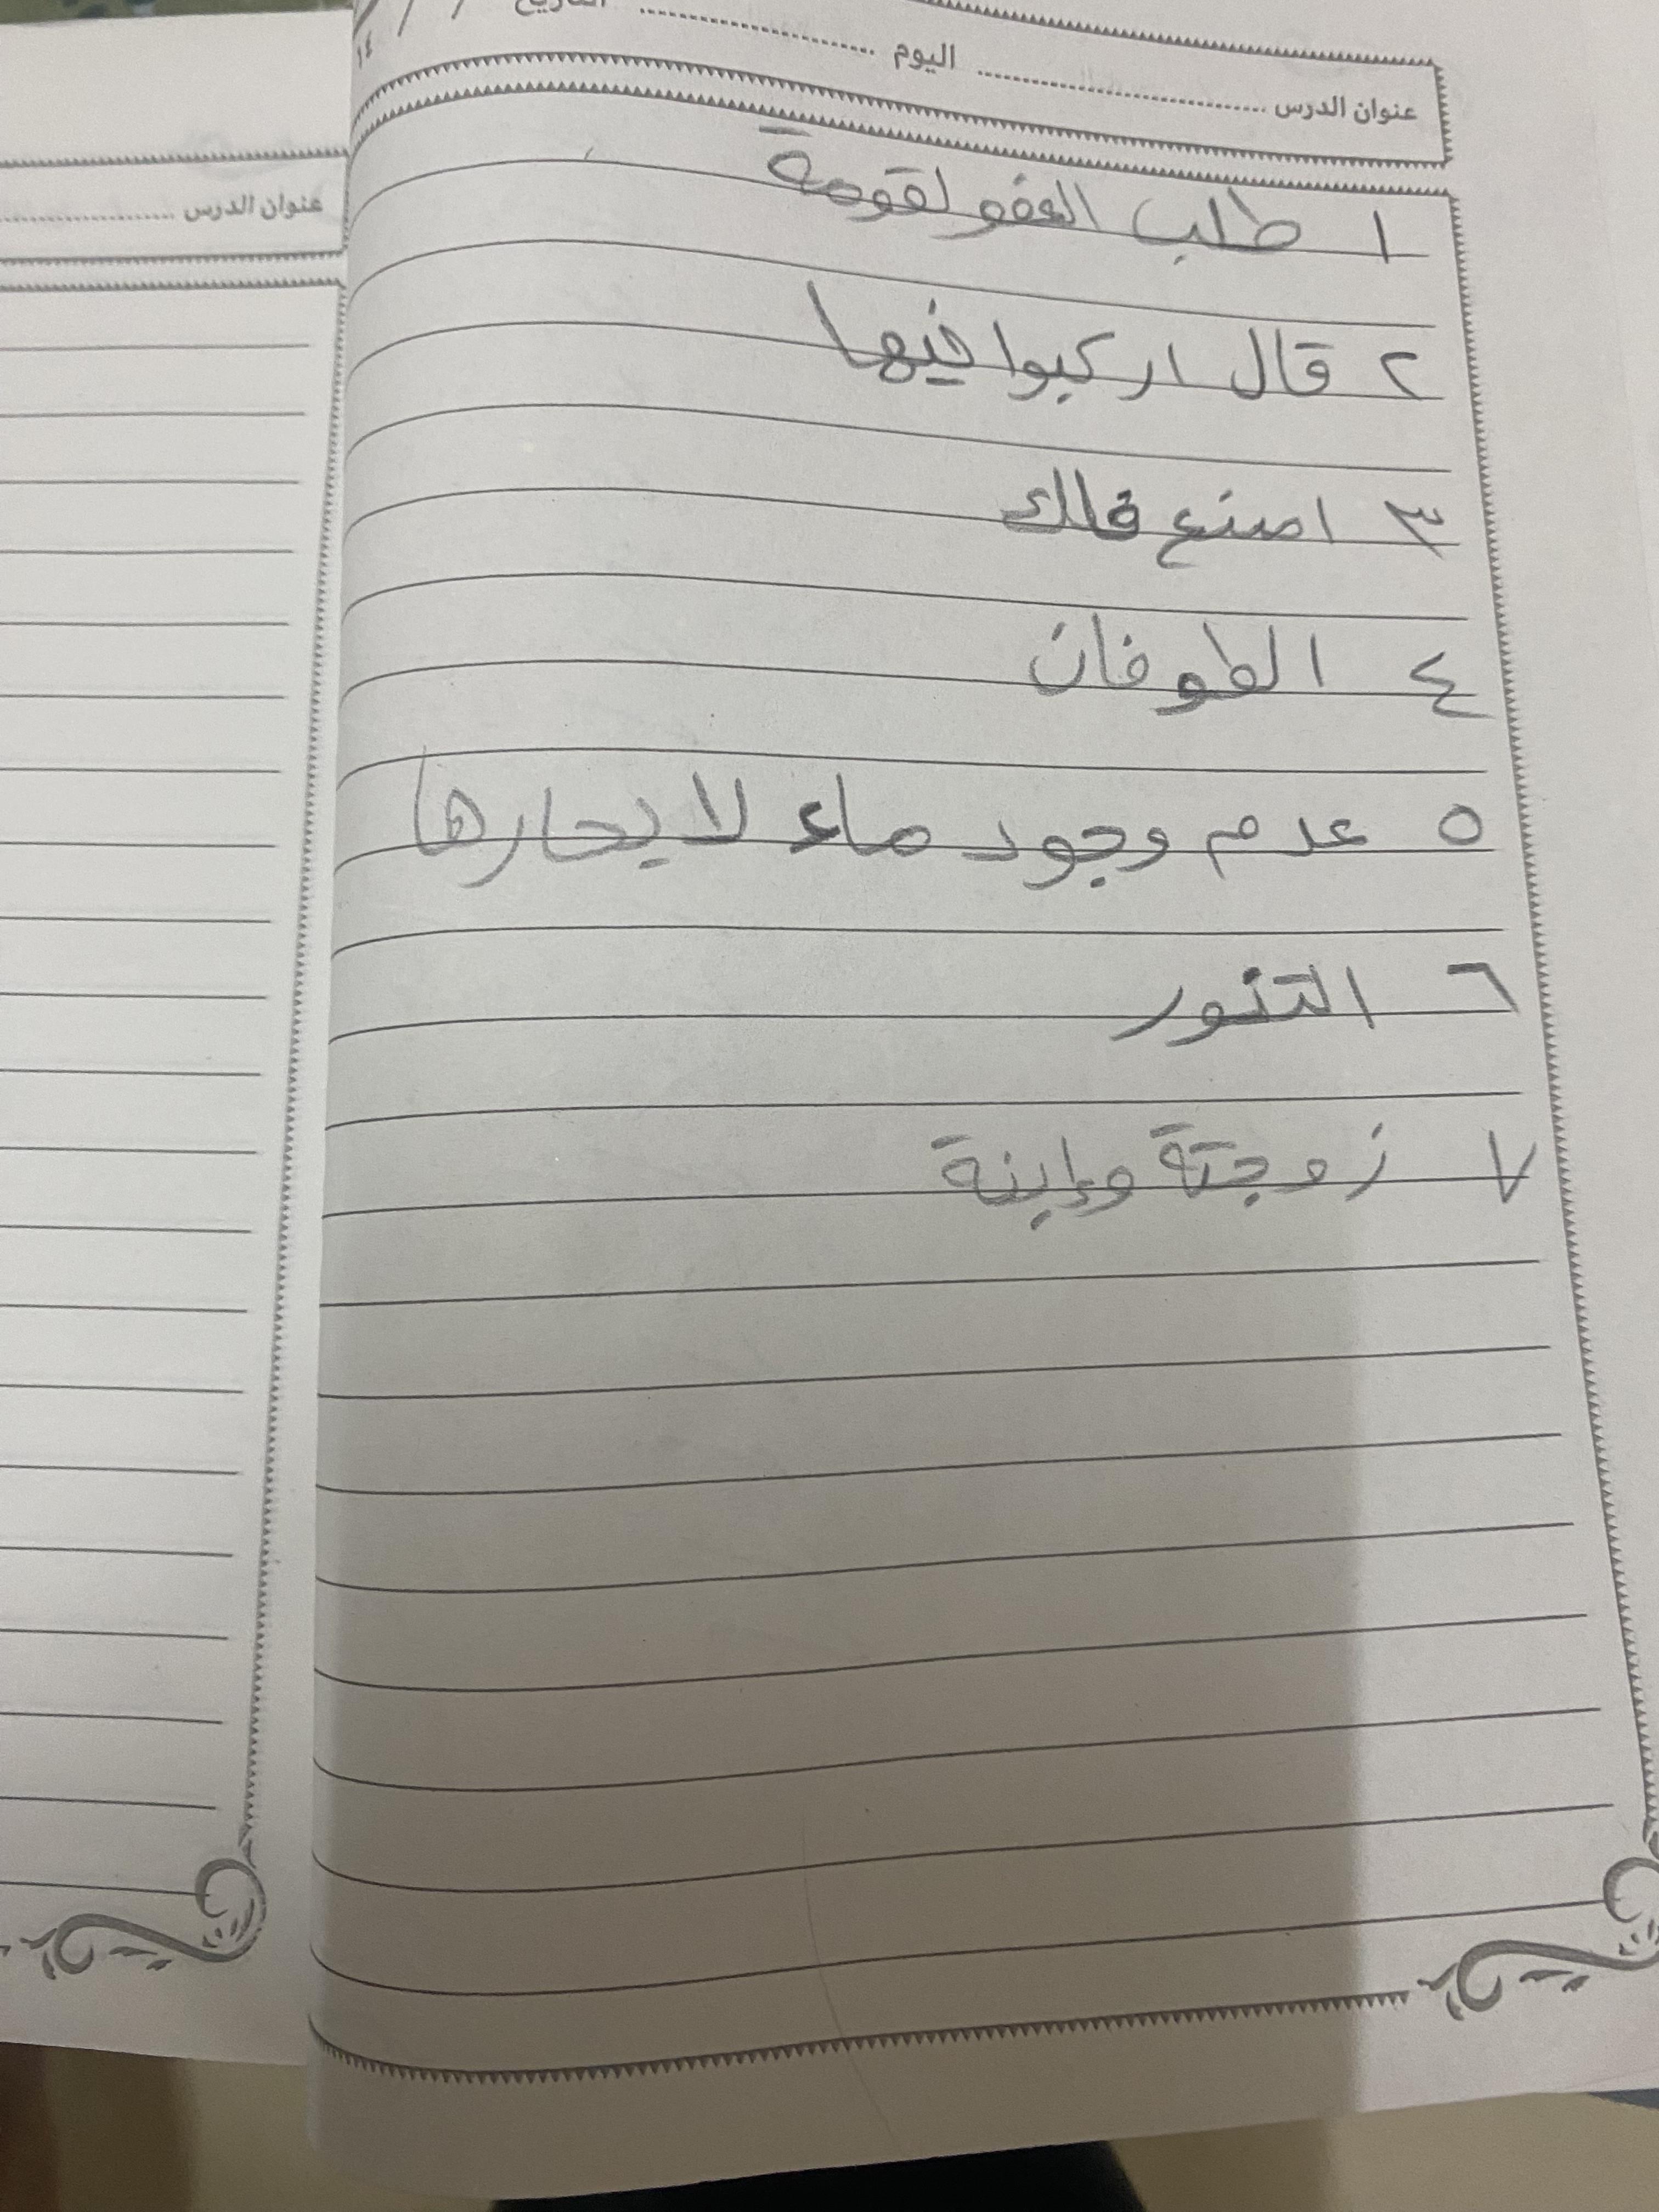 التاريخ
١٤
اليوم
عنوان الدرس
عنوان الدرس
١ طلب العفو لقومة
٢ قال اركبوا فيها
٣ اصنع فلك
٤ الطوفان
٥ عدم وجود ماء لا يحارها
٦ التنور
٧ زوجتة وإبنة